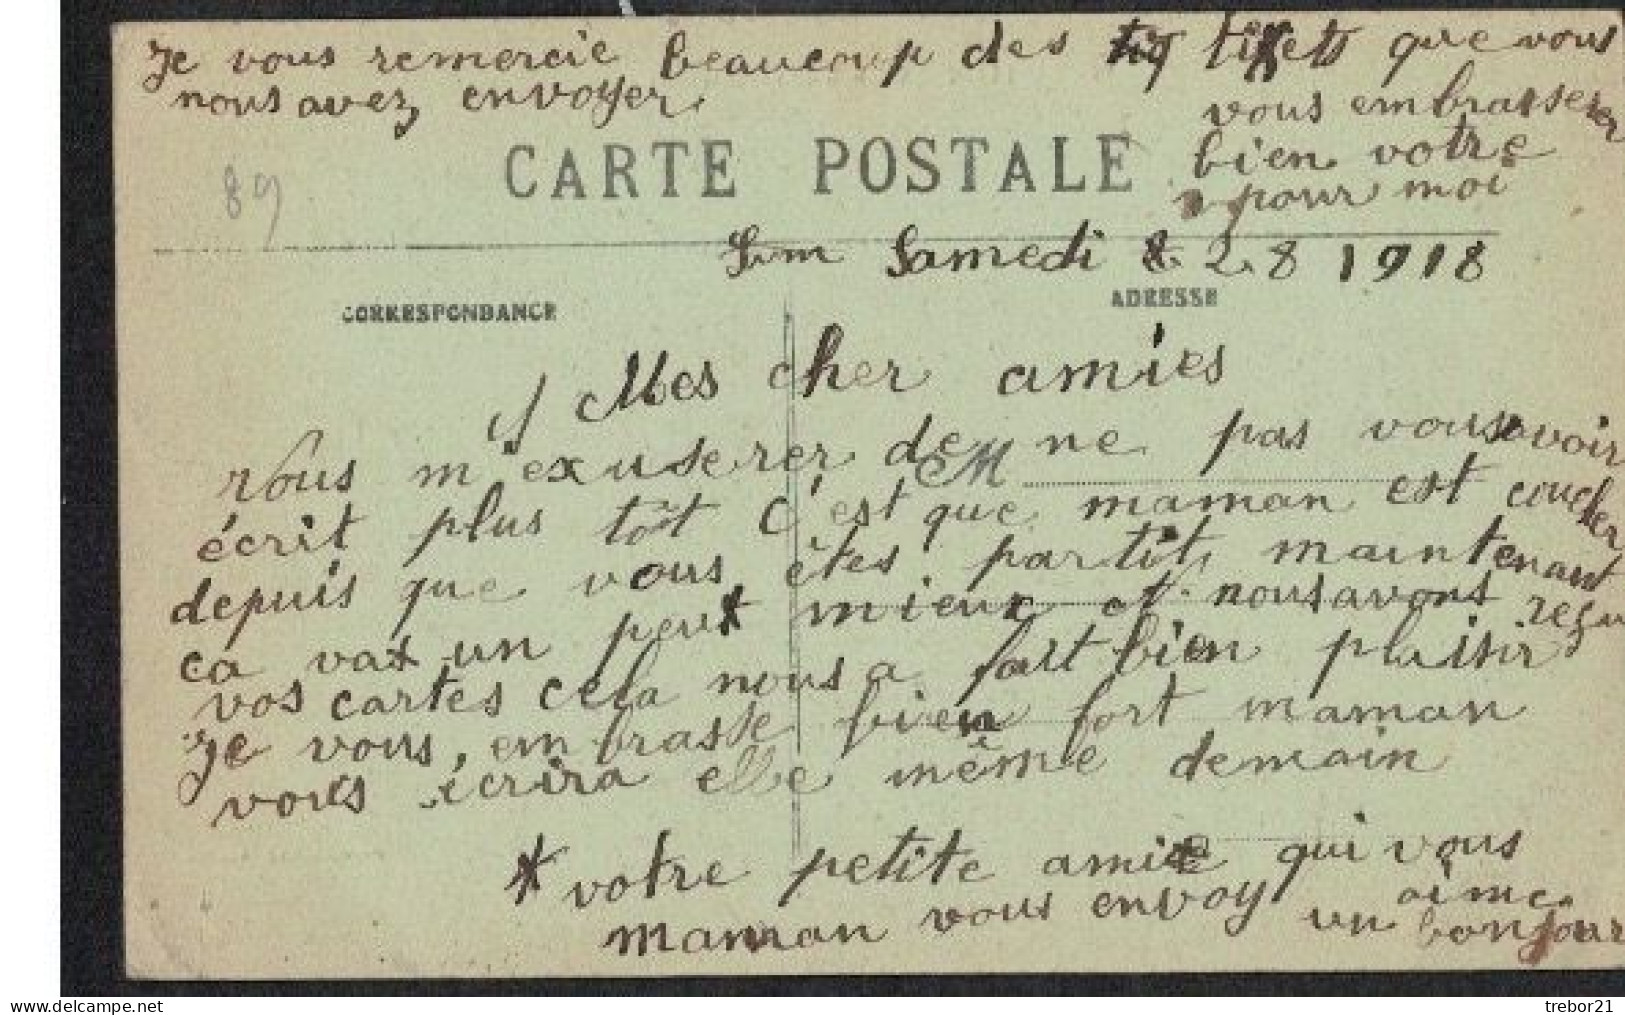 Je vous remercie beaucoup des tickets que vous
nous avez envoyer.
vous embrasserer
bien votre
pour moi
CARTE POSTALE
89
Samedi 2 8 1918
CORRESPONDANCE
ADRESSE
Mes cher amies
Nous m'exuserer de ne pas vous avoir
M
écrit plus tôt C'est que maman est coucher
depuis que vous êtes partit, maintenant
ca va un peu mieux et nous avons reçu
vos cartes cela nous a fait bien plaisir
Je vous embrasse bien fort maman
vous écrira elle même demain
votre petite amie qui vous
aime.
Maman vous envoy un bonjour
trebor21